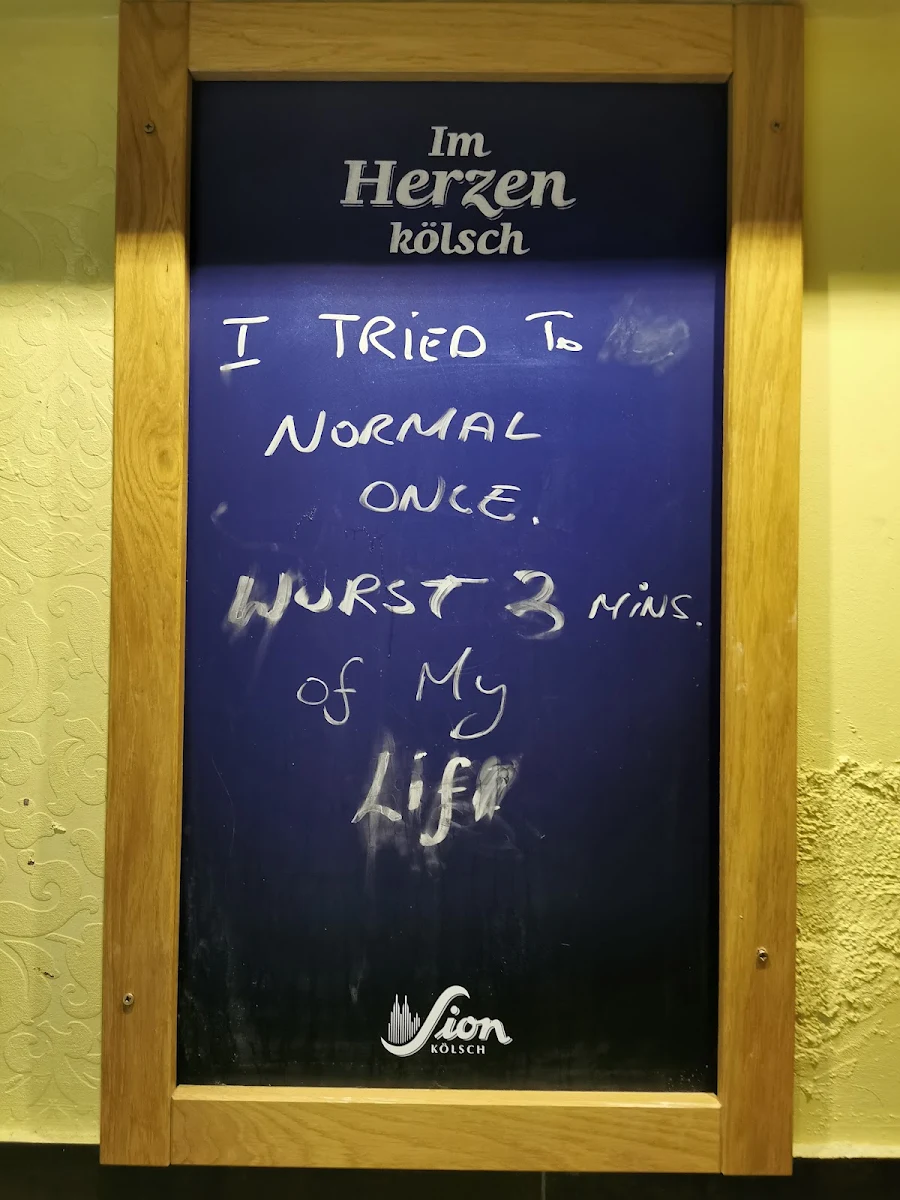 Im
Herzen
kölsch
I TRiED To
NORMAL
ONCE.
WURST 3 MiNS.
of My
Life
Sion
KÖLSCH